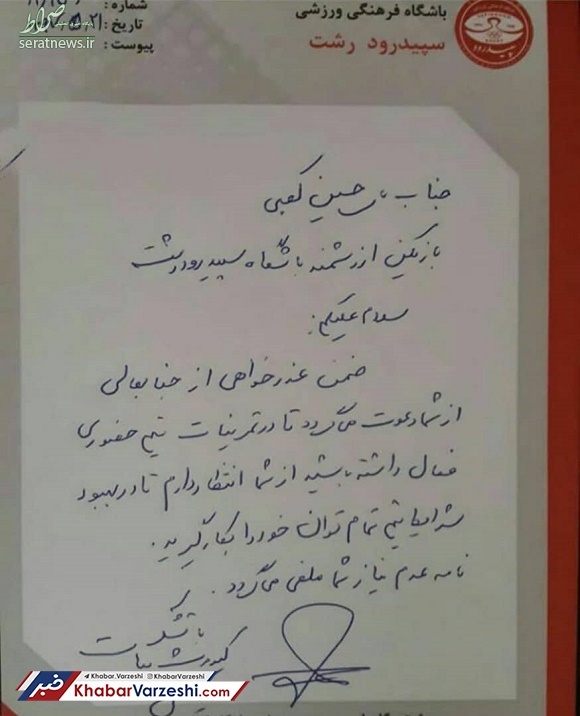 باشگاه فرهنگی ورزشی
سپیدرود رشت
شماره :
تاریخ :
پیوست :
صراط
seratnews.ir
جناب حسین کعبی
بازیکن ارزشمند باشگاه سپیدرود رشت
سلام علیکم:
ضمن عذرخواهی از جنابعالی
از شما دعوت می‌گردد تا در تمرینات تیم حضوری
فعال داشته باشید از شما انتظار دارم تا در بهبود
شرایط تیم تمام توان خود را بکار گیرید.
نامه عدم نیاز شما ملغی می‌گردد.
با تشکر
خبر KhabarVarzeshi.com
Khabar.Varzeshi Khabar_Varzeshi